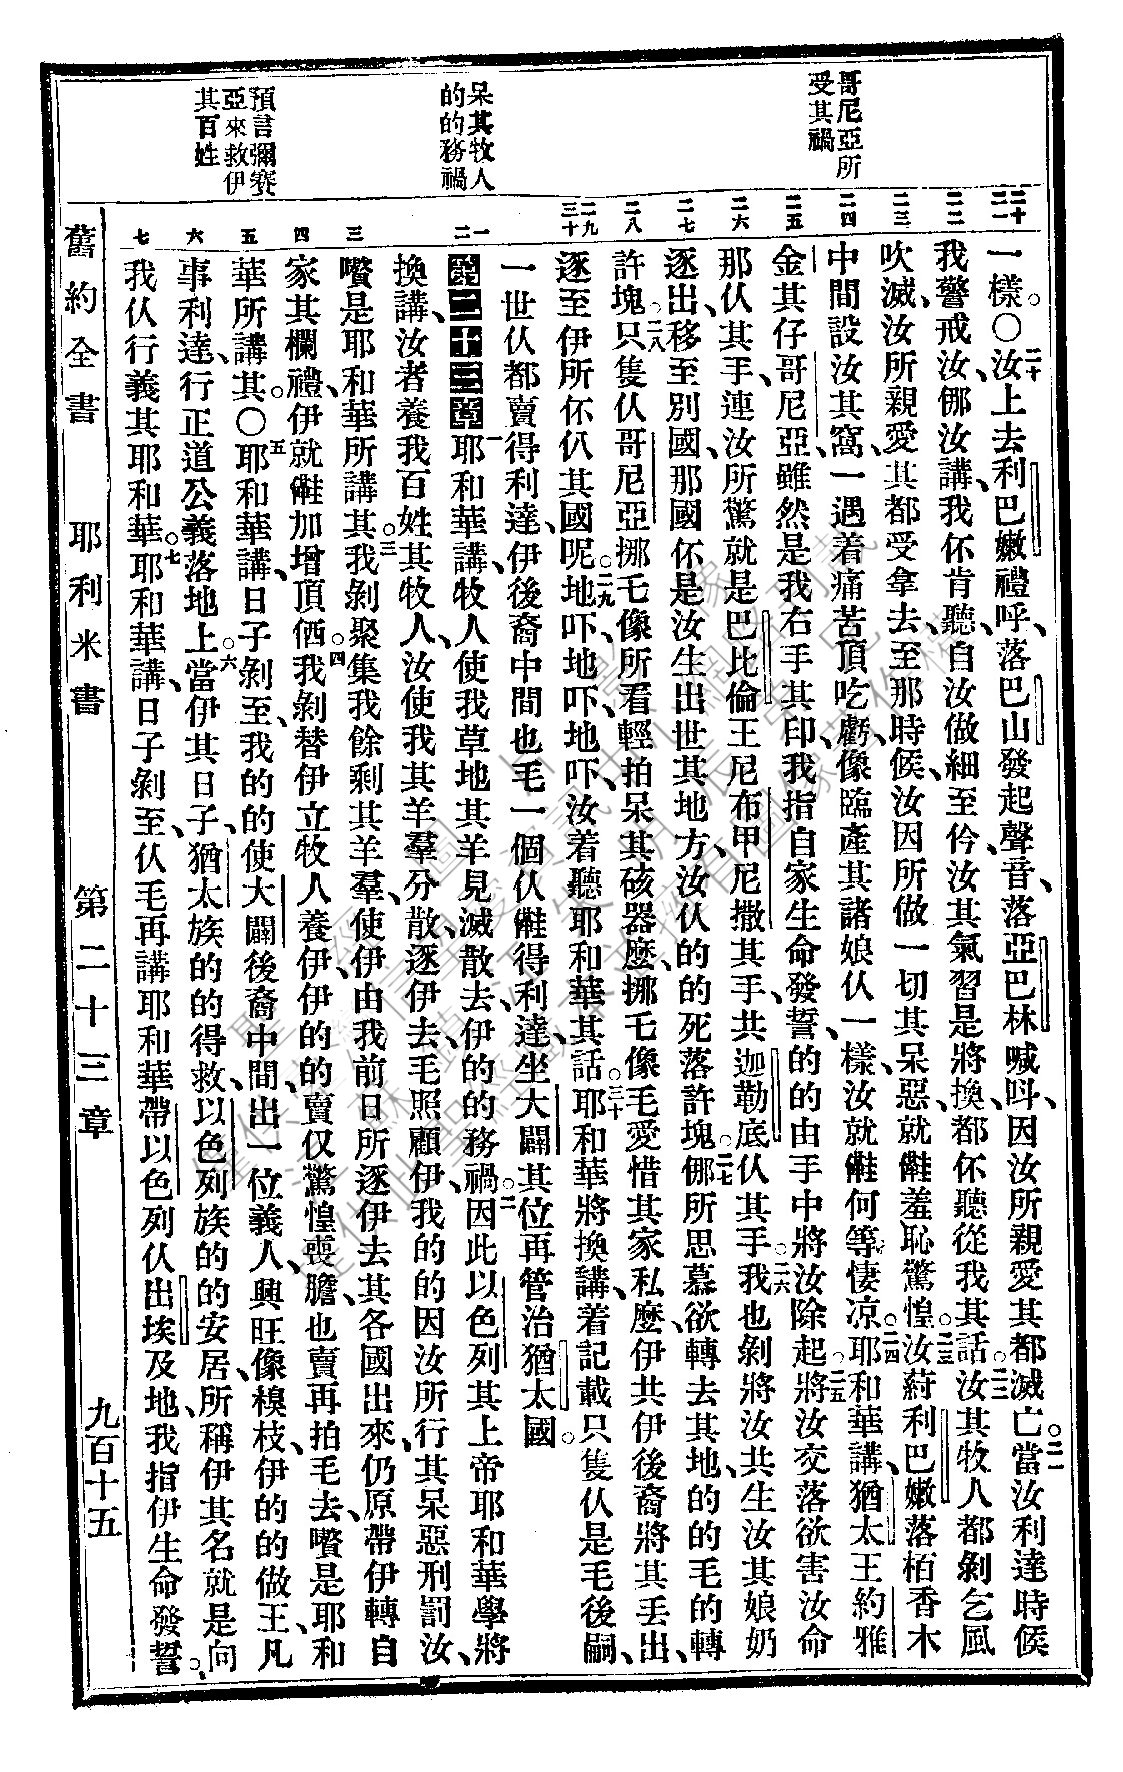 哥尼亞所
受其禍
呆其牧人
的的務禍
預言彌賽
亞來救伊
其百姓
二十
二一
二二
二三
二四
二五
二六
二七
二八
二九
三十
一
二
三
四
五
六
七
一樣。〇二十汝上去利巴嫩禮呼、落巴山發起聲音、落亞巴林喊呌、因汝所親愛其都滅亡。二一當汝利達時候
我警戒汝、倻汝講、我伓肯聽、自汝做細至伶、汝其氣習是將換、都伓聽從我其話。二二汝其牧人都剝乞風
吹滅、汝所親愛其都受拿去、至那時候、汝因所做一切其呆惡、就𣍐羞恥驚惶。二三汝蒞利巴嫩落栢香木
中間設汝其窩、一遇着痛苦頂吃虧、像臨產其諸娘仈一樣、汝就𣍐何等悽凉。二四耶和華講、猶太王約雅
金其仔哥尼亞、雖然是我右手其印、我指自家生命發誓、的的由手中將汝除起。二五將汝交落欲害汝命
那仈其手、連汝所驚就是巴比倫王尼布甲尼撒其手、共迦勒底仈其手。二六我也剝將汝共生汝其娘奶
逐出、移至別國、那國伓是汝生出世其地方、汝仈的的死落許塊。二七倻所思慕欲轉去其地、的的毛的轉
許塊。二八只隻仈哥尼亞、挪乇像所看輕拍呆其硋器麽、挪乇像毛愛惜其家私麽、伊共伊後裔將其丟出、
逐至伊所伓仈其國呢。二九地吓、地吓、地吓、汝着聽耶和華其話。三十耶和華將換講、着記載只隻仈是毛後嗣、
一世仈都賣得利達、伊後裔中間也毛一個仈𣍐得利達、坐大闢其位再管治猶太國。
第二十三章 一耶和華講、牧人使我草地其羊見滅散去、伊的的務禍。二因此以色列其上帝耶和華學將
換講、汝者養我百姓其牧人、汝使我其羊羣分散、逐伊去、毛照顧伊、我的的因汝所行其呆惡刑罰汝、
嚽是耶和華所講其。三我剝聚集我餘剩其羊羣、使伊由我前日所逐伊去其各國出來、仍原帶伊轉自
家其欄禮、伊就𣍐加增頂価。四我剝替伊立牧人養伊、伊的的賣仅驚惶喪膽、也賣再拍毛去、嚽是耶和
華所講其。〇五耶和華講、日子剝至、我的的使大闢後裔中間、出一位義人、興旺像樑枝、伊的的做王、凡
事利達、行正道公義落地上。六當伊其日子、猶太族的的得救、以色列族的的安居、所稱伊其名就是向
我仈行義其耶和華。七耶和華講、日子剝至、仈毛再講耶和華帶以色列仈出埃及地、我指伊生命發誓。
舊約全書 耶利米書 第二十三章 九百十五